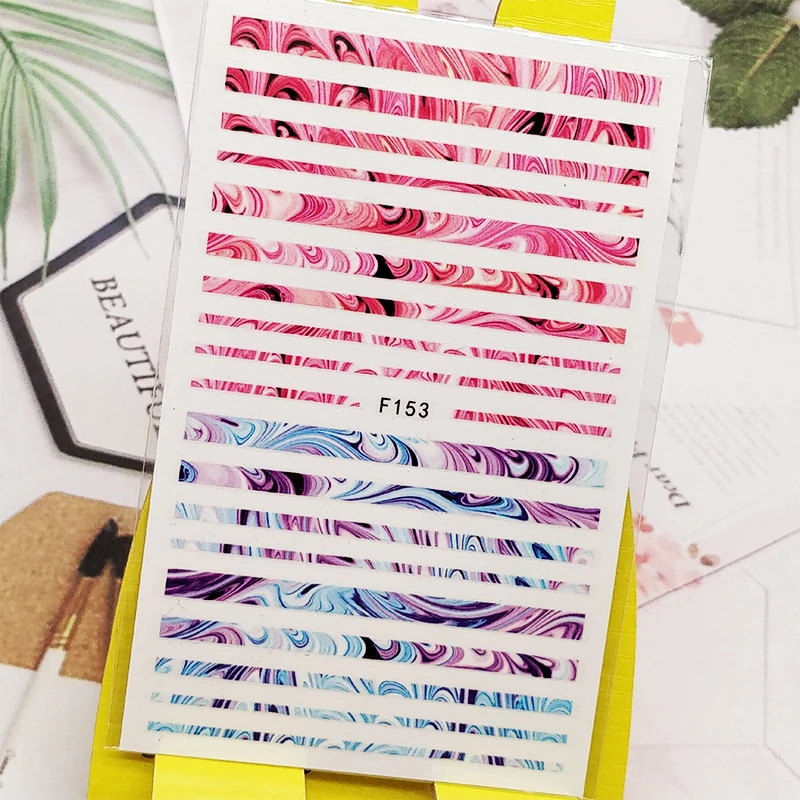 BEAUTIFU
F153
Dear